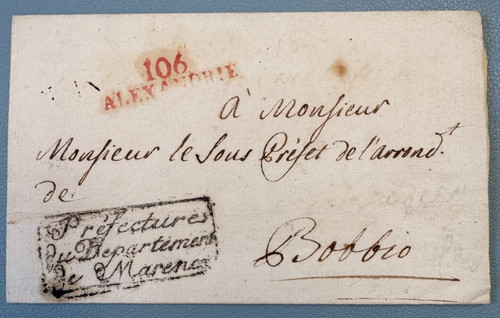 106
ALEXANDRIE
à Monsieur
Monsieur le Sous Préfet de l'arrond.t
de
Bobbio
Préfectures
du Département
de Marengo